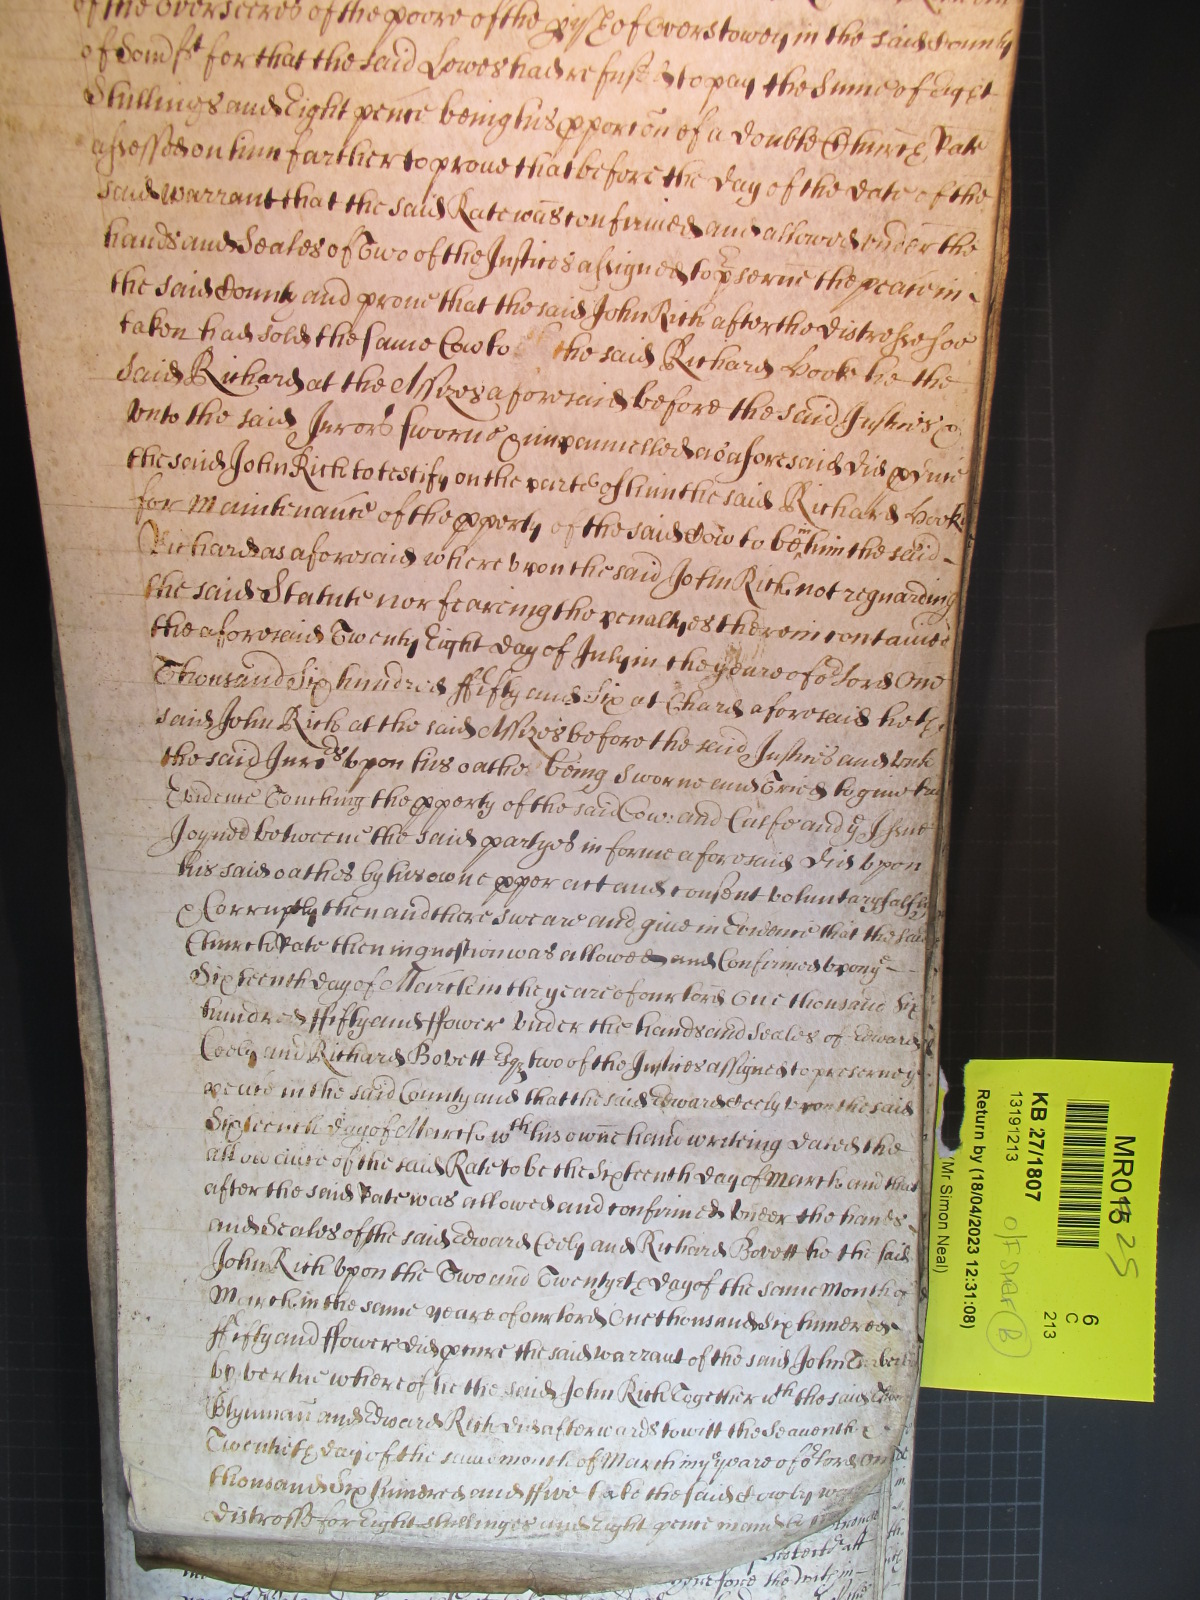 of the Overseeres of the poore of the pish of Overstowey in the said County
of Somst for that the said Lowes had refused to pay the Sume of Eight
Shillings and Eight pence being his pporcon of a double Church Rate
assessed on him farther to prove that before the day of the date of the
said warrant that the said Rate was confirmed and allowed under the
hands and Seales of Two of the Justices assigned to pserve the peace in
the said County and prove that the said John Rich after the distresse soe
taken had sold the same Cow to the said Richard Hooke he the
said Richard at the Assizes aforesaid before the said Justices &
Vnto the said Jurors sworne & impannelled as aforesaid did pduce
the said John Rich to testify on the parte of him the said Richard Hooke
for Maintenance of the pperty of the said Cow to be in him the said
Richard as aforesaid where vpon the said John Rich not reguarding
the said Statute nor fearcing the penaltyes therein contained
the aforesaid Twenty Eight day of July in the yeare of or Lord One
Thousand Six hundred ffifty and Six at Chard aforesaid he the
said John Rich at the said Assizes before the said Justices and
the said Jurors vpon his oathe being Sworne and Tried to give
Evidence Touching the pperty of the said Cow and Calfe and ye Issue
Joyned betweene the said partyes in forme aforesaid did vpon
his said oathes by his owne pper act and consent voluntary falsly
& Corruptly then and there sweare and give in Evidence that the said
Church Rate then in question was allowed and Confirmed vpon ye
Sixteenth day of March in the yeare of our lord One thousand Six
hundred ffifty and ffower Vnder the hands and Seales of Edward
Ceely and Richard Bovett Esqrs two of the Justices assigned to preserve ye
peace in the said County and that the said Edward Ceely vpon the said
Sixteenth day of March wth his owne hand writeing dated the
allowance of the said Rate to be the Sixteenth day of March and that
after the said Rate was allowed and confirmed Vnder the hands
and Seales of the said Edward Ceely and Richard Bovett he the said
John Rich vpon the Two and Twentyeth day of the same Month of
March in the same yeare of our lord One thousand Six hundred
ffifty and ffower did pcure the said warrant of the said John
by vertue whereof he the said John Rich Together wth the said
Blynman and Edward Rich did afterwards to witt the Seaventh &
Twentieth day of the same month of March in ye yeare of or Lord One
thousand Six hundred and ffive take the said Cow by way
distresse for Eight Shillinges and Eight pence
MR015 25
6
C
213
KB 27/1807
13191213
O/F Shelf B
Return by (18/04/2023 12:31:08)
(Mr Simon Neal)